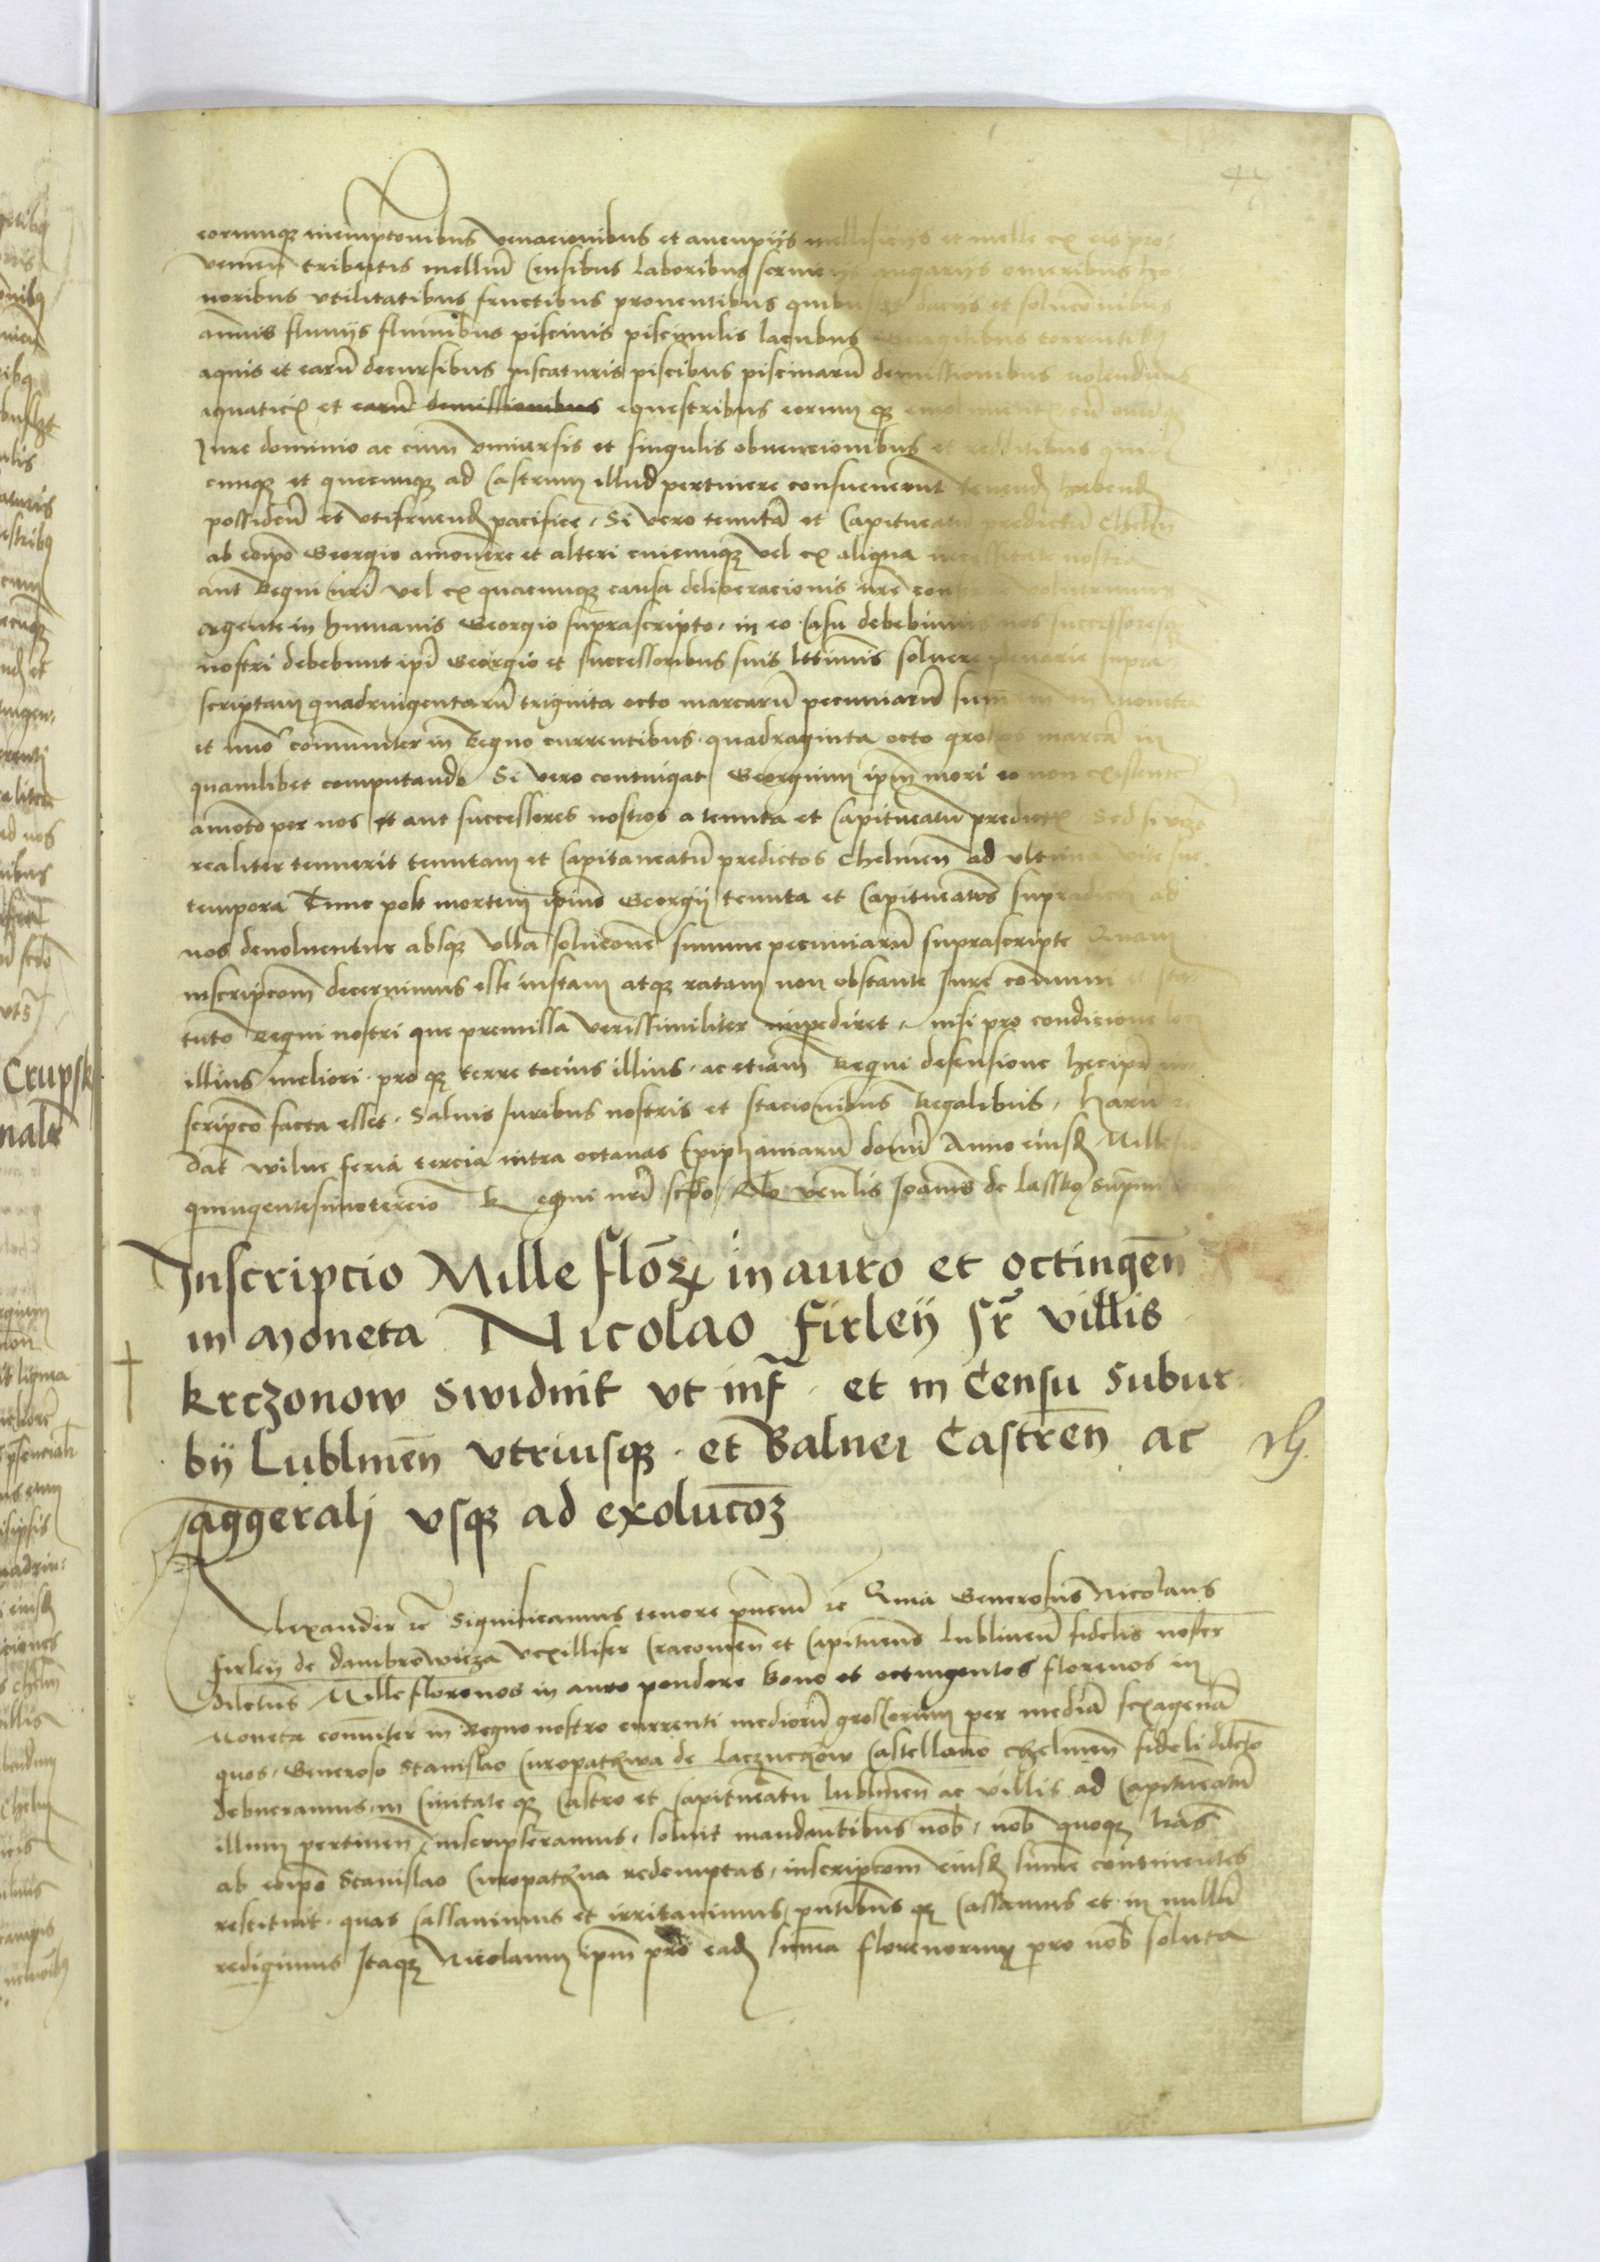 eorumque niemptonibus venacionibus et aucupiis mellificiis et melle ex eis pro-
venien tributis mellium Censibus laboribus servitiis angariis oneribus ho-
noribus utilitatibus fructibus proventibus quibus daciis et solucionibus
amnis fluviis fluminibus piscinis pisciculis lacubus
aquis et earum decursibus piscaturis piscibus piscinarum demissionibus molendinis
aquaticis et earum demissionibus equestribus eorumque emolumentis cum omni
Jure dominio ac cum universis et singulis obvencionibus et redditibus
cunque et quecunque ad Castrum illud pertinere consueverunt tenend habend
possidend et utifruend pacifice. Si vero tenutam et Capitneatum predictum Chelmen
ab eoipso Georgio amovere et alteri cuicunque vel ex aliqua necessitate nostra
aut Regni nri vel ex quacunque causa deliberacionis nre voluerimus
agente in humanis Georgio suprascripto, in eo Casu debebimus nos successores
nostri debebunt ipi Georgio et successoribus suis lttimis solvere plenarie supra-
scriptam quadringentarum triginta octo marcarum pecuniarum summam in moneta
et nuo communiter in Regno currentibus quadraginta octo grossos marcam in
quamlibet computando Si vero contingat Georgium ipm mori eo non existente
amoto per nos et aut successores nostros a tenuta et Capitneatu predictis Sed si
realiter tenuerit tenutam et Capitaneatum predictos Chelmen ad ultima vite sue
tempora Tunc post mortem ipius Georgii tenuta et Capitneatus supradicti ad
nos devolventur absque ulla solucione summe pecuniarum suprascripte Quam
inscripcom decernimus esse iustam atque ratam non obstante Jure communi et sta-
tuto Regni nostri que premissa verissimiliter impediret, nisi pro condicione loci
illius meliori proque terre tocius illius, ac etiam Regni defensione hec ipa in-
scripco facta esset. Salvis Juribus nostris et stacionibus Regalibus, harum
dat wilne feria tercia intra octavas Epiphaniarum domi Anno eiusd Millesimo
quingentesimotercio R egni nri Rlo venlis Joannis de Lassko
Inscripcio Mille floz in auro et octingen
in moneta Nicolao firleij sr villis
krczonow Swidnik vt inf. et in Censu Subur-
bij Lublinen vtriusque. et Balnei Castren ac
aggerali vsque ad exolucoz
Alexander rc Significamus tenore pncium rc Quia Generosus Nicolaus
firleij de dambrowicza vexillifer Cracovien et Capitneus Lublinen fidelis noster
dilectus Mille florenos in auro pondere bono et octingentos florenos in
Moneta comuniter in Regno nostro currenti mediorum grossorum per mediam sexagenam
quos, Generoso Stanislao Curopathwa de Laczuchow Castellano chelmen fideli dilecto
debueramus, in Civitate que Castro et Capitneatu lublinen ac villis ad Capitneatum
illum pertinen inscripseramus, soluit mandantibus nob, nob quoque lras
ab eoipo Stanislao Curopathwa redemptas, inscripcom eiusd summe continentes
restituit. quas Cassavimus et irritavimus pntibusque Cassamus et in nullum
redigimus Itaque Nicolaum ipm pro ead summa florenorum pro nob soluta